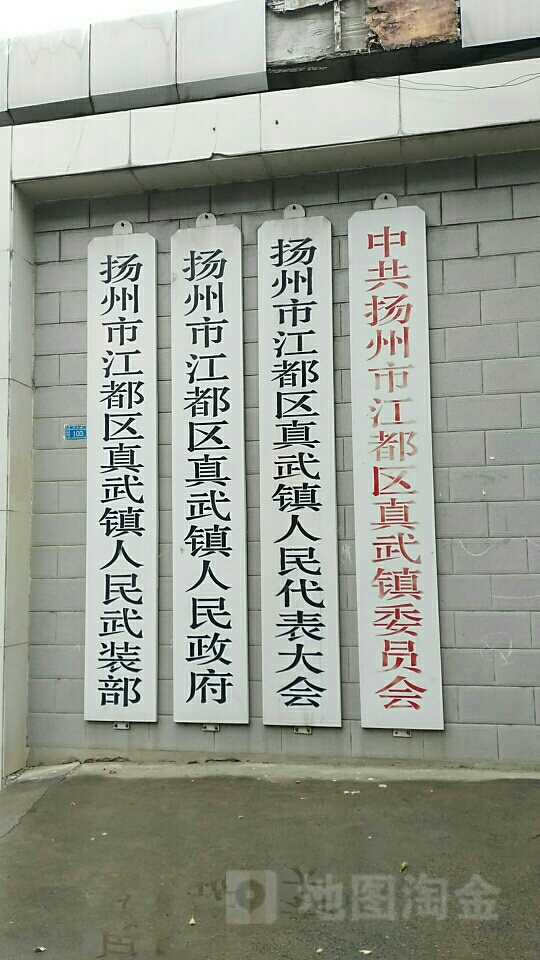 中共扬州市江都区真武镇委员会
扬州市江都区真武镇人民代表大会
扬州市江都区真武镇人民政府
扬州市江都区真武镇人民武装部
100
地图淘金